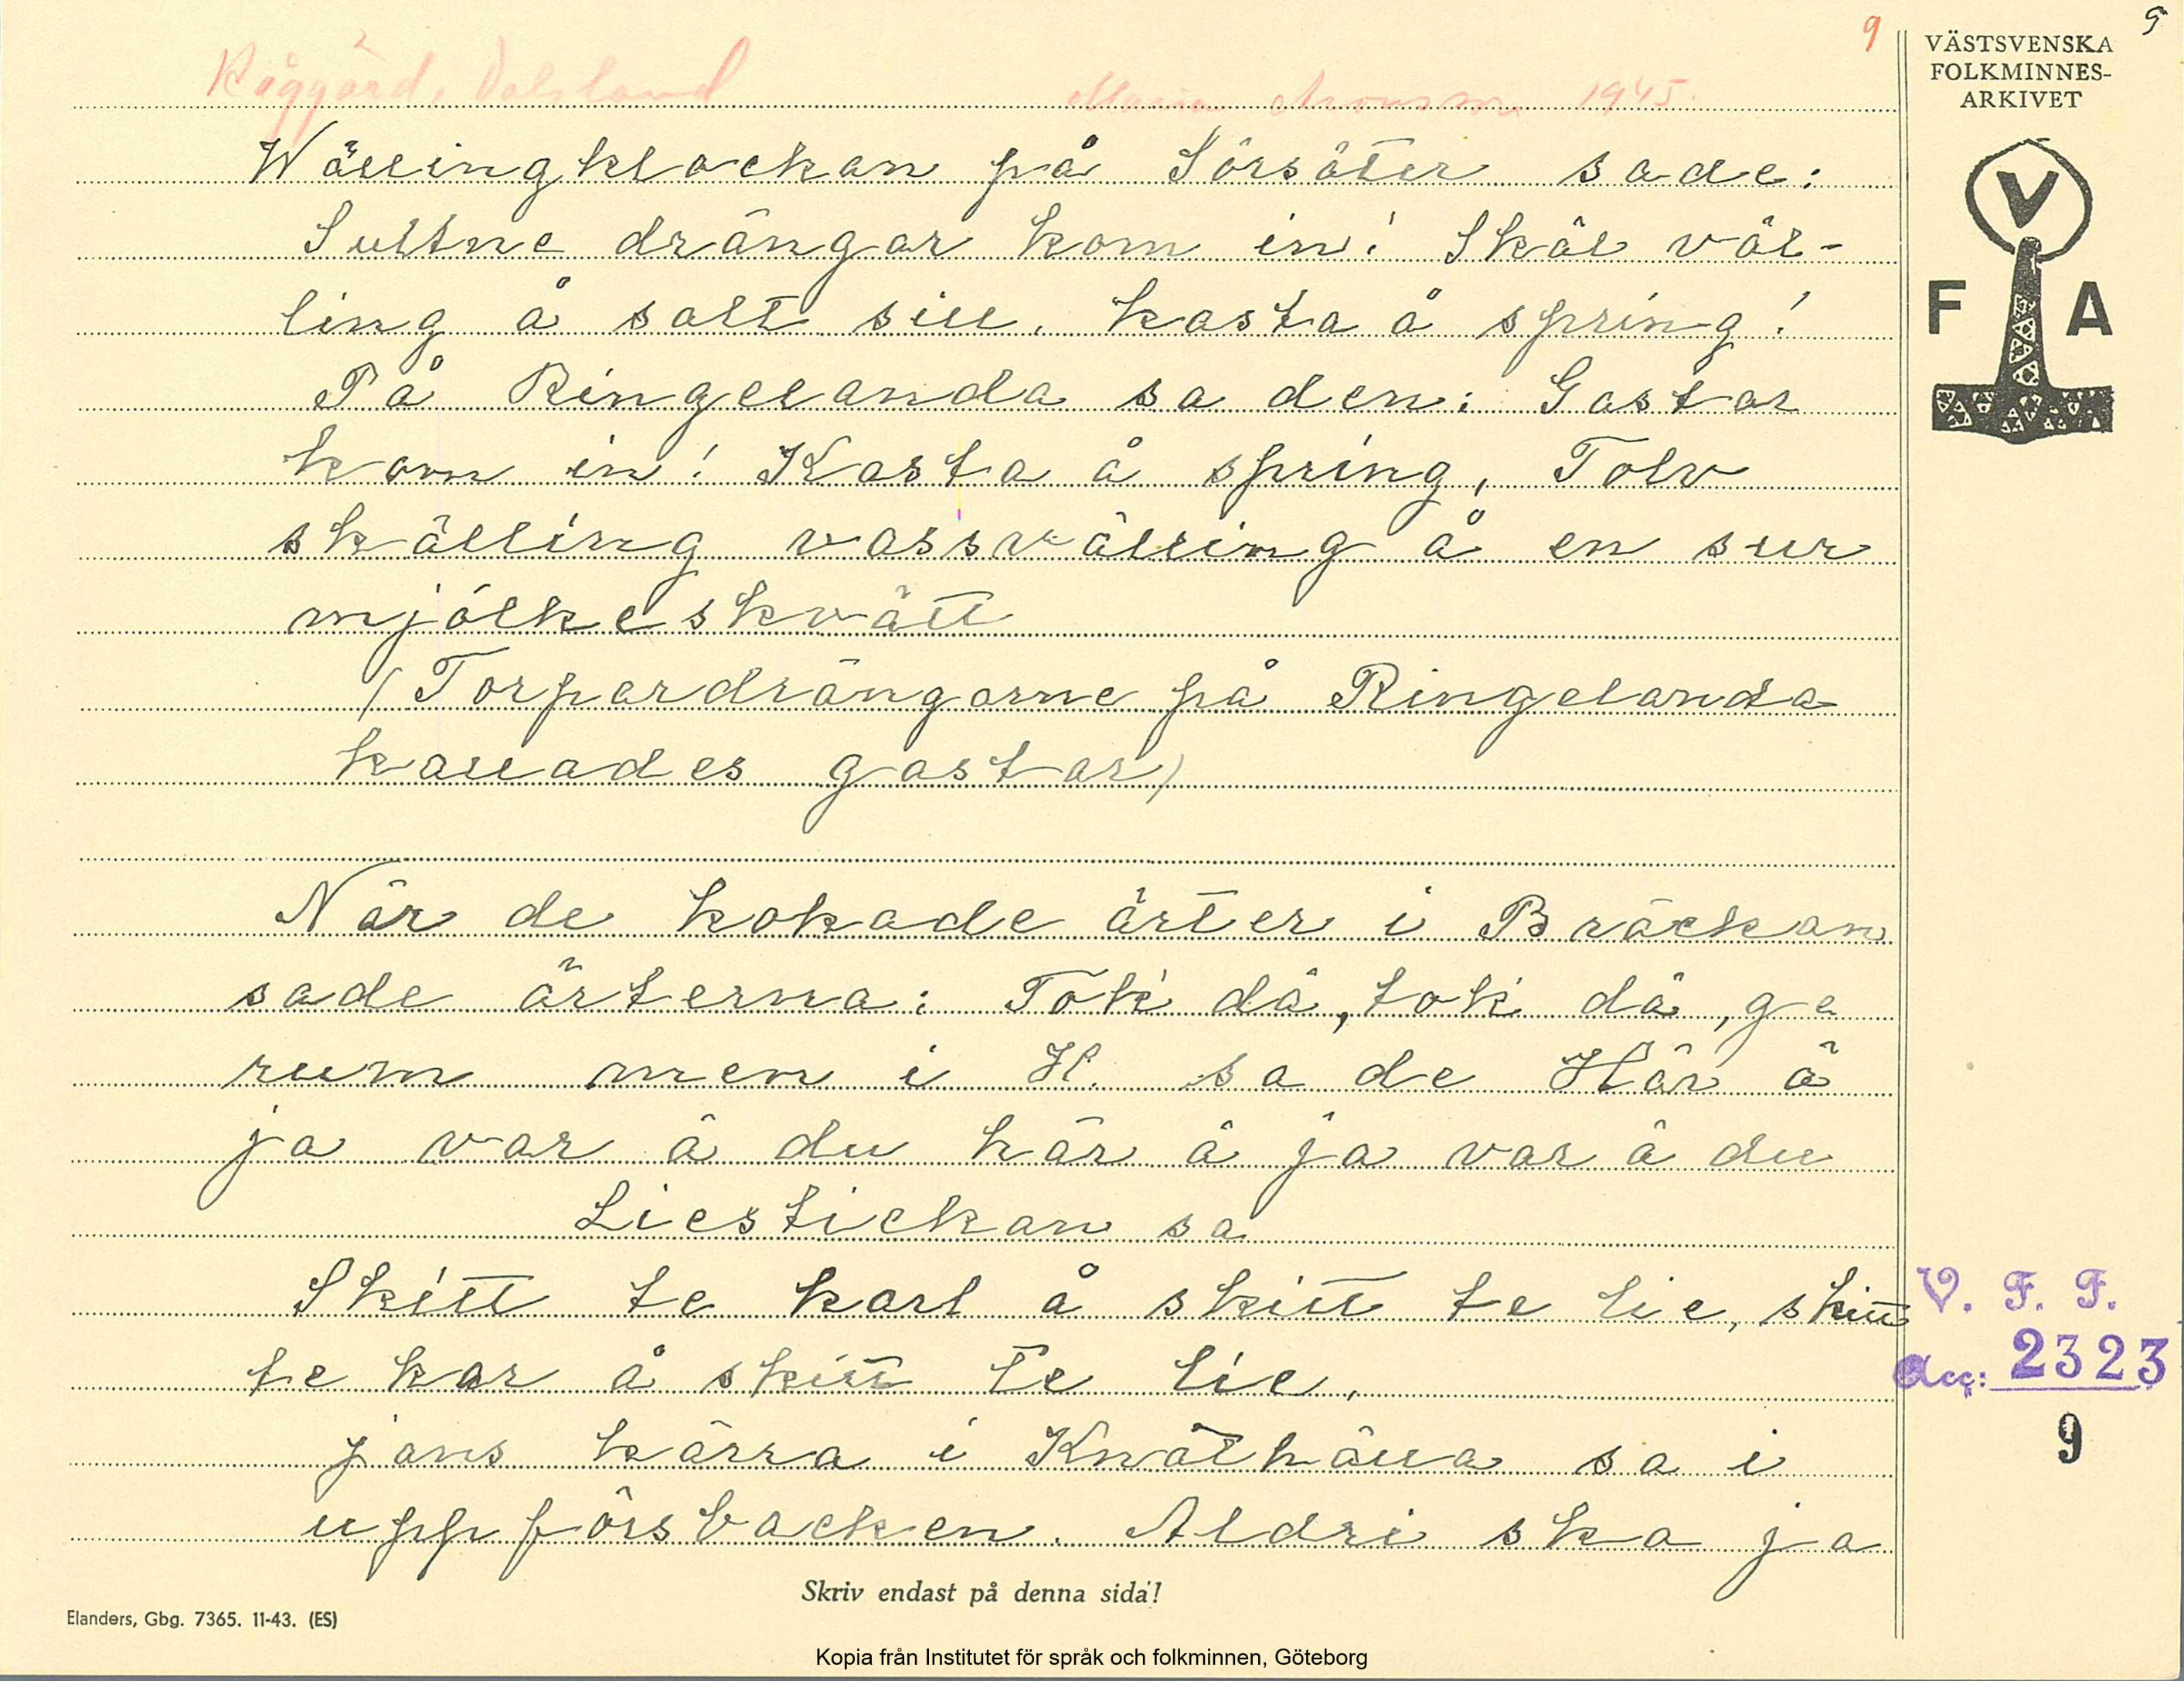 9
9
VÄSTSVENSKA
FOLKMINNES-
ARKIVET
Råggärd, Dalsland Maria Aronsson 1945.
Wällingklockan på Sörsäter sade:
Sultne drängar kom in! Skäl väl-
ling å salt sill, kasta å spring!
På Ringelanda sa den: Gastar
kom in! Kasta å spring, Tolv
skälling vassvälling å en sur
mjölkeskvätt
(Torpardrängarne på Ringelanda
kallades gastar)
När de kokade ärter i Bräckan
sade ärterna: Tok' då, tok' då, ge
rum men i H. sa de Här ä
ja var ä du här ä ja var ä du
Liestickan sa
Skitt te karl å skitt te lie, skitt
te kar å skitt te lie,
jans kärra i Knäthälla sa i
uppförsbacken. Aldri ska ja
V
F A
V. F. F.
Acc: 2323
9
Skriv endast på denna sida!
Elanders, Gbg. 7365. 11-43. (ES)
Kopia från Institutet för språk och folkminnen, Göteborg